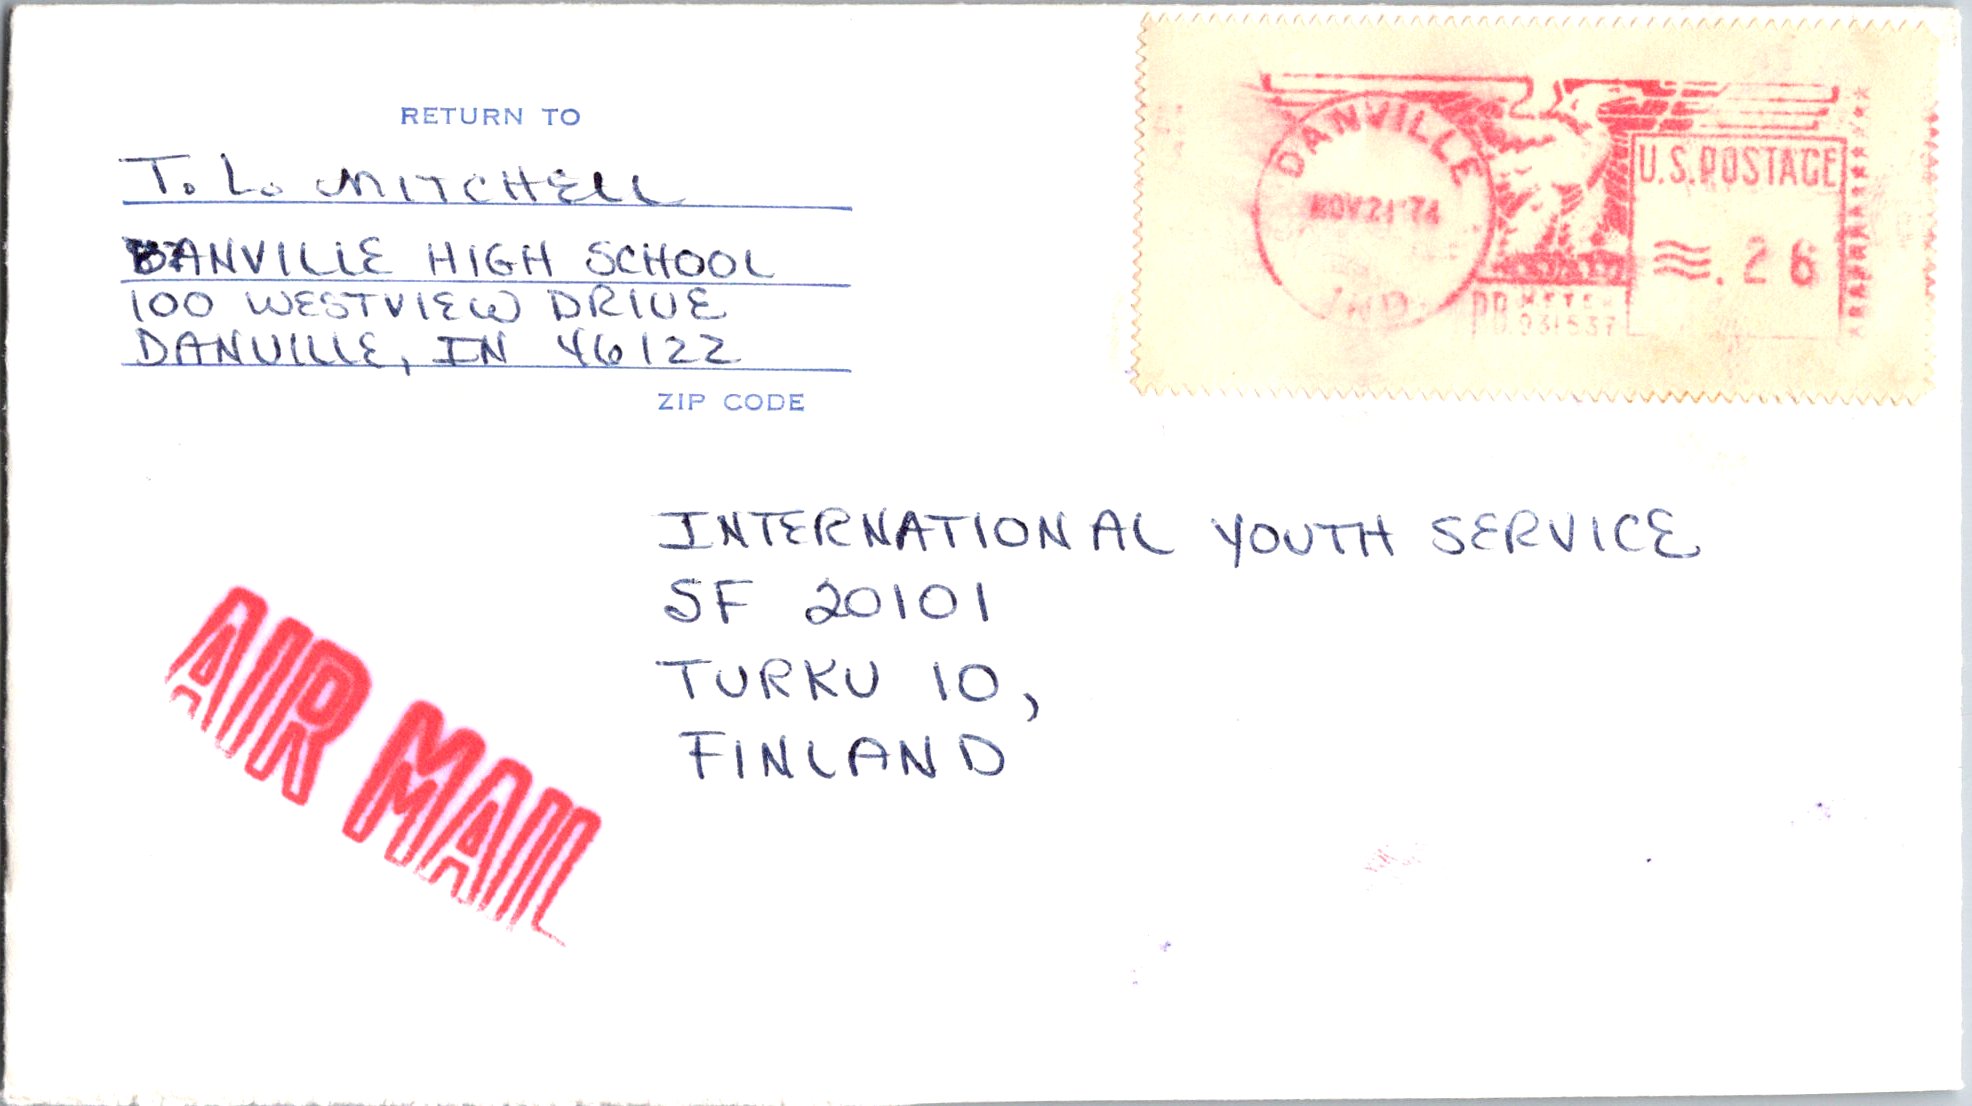 RETURN TO
T. L. MITCHELL
DANVILLE HIGH SCHOOL
100 WESTVIEW DRIVE
DANVILLE, IN 46122
ZIP CODE
DANVILLE
NOV 21 '74
IND.
U.S. POSTAGE
.26
P.B. METER
931537
INTERNATIONAL YOUTH SERVICE
SF 20101
TURKU 10,
FINLAND
AIR MAIL